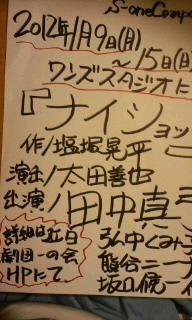 S-oneComp
2012年1月9日(月)
～15日(日)
ワンズスタジオに
『ナイショ
作/塩塚晃平
演出/太田善也
出演/田中真
弘中くみ子
熊谷ニ
坂口候一
詳細は近日
劇団一の会
HPにて。